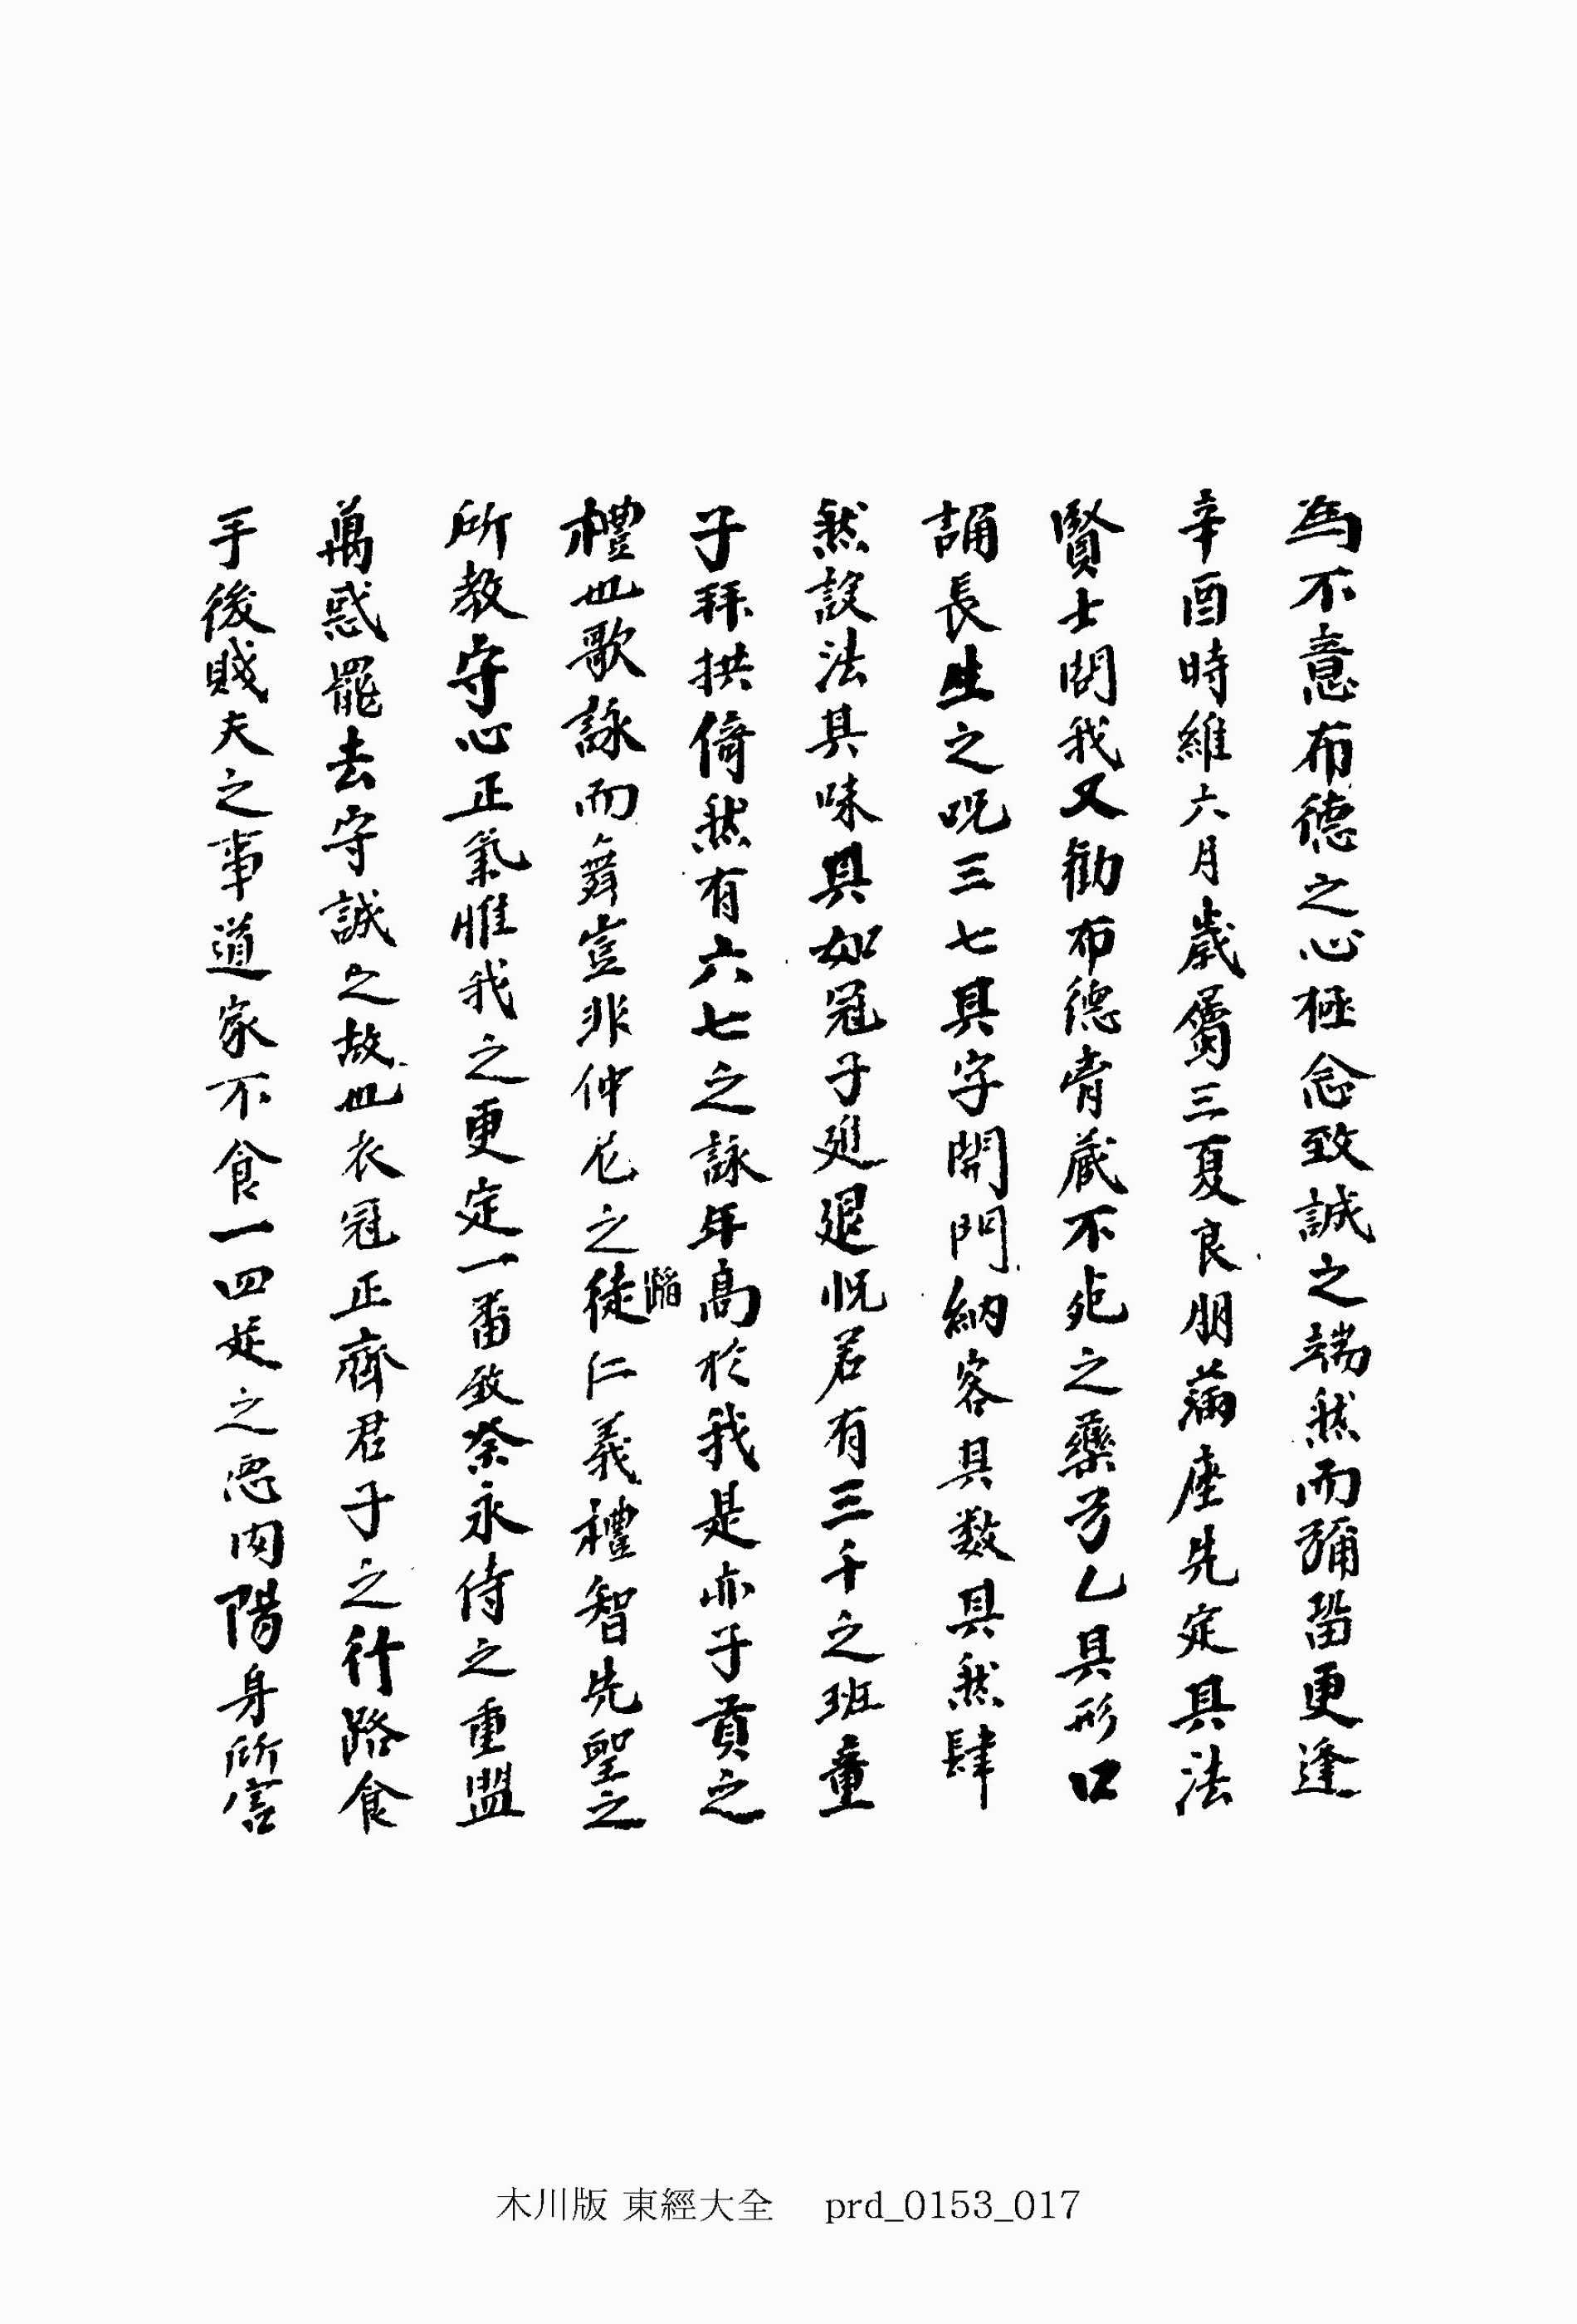 爲不意布德之心極念致誠之端然而彌留更逢
辛酉時維六月歲屬三夏良朋滿座先定其法
賢士問我又勸布德胷藏不死之藥弓乙其形口
誦長生之呪三七其字開門納客其數其然肆
然設法其味其如冠子進退怳若有三千之班童
子拜拱倚然有六七之詠年高於我是亦子貢之
禮也歌詠而舞豈非仲尼之徒仁義禮智先聖之
蹈
所教守心正氣惟我之更定一番致祭永侍之重盟
萬惑罷去守誠之故也衣冠正齊君子之行路食
手後賤夫之事道家不食一四足之惡肉陽身所害
木川版 東經大全 prd_0153_017